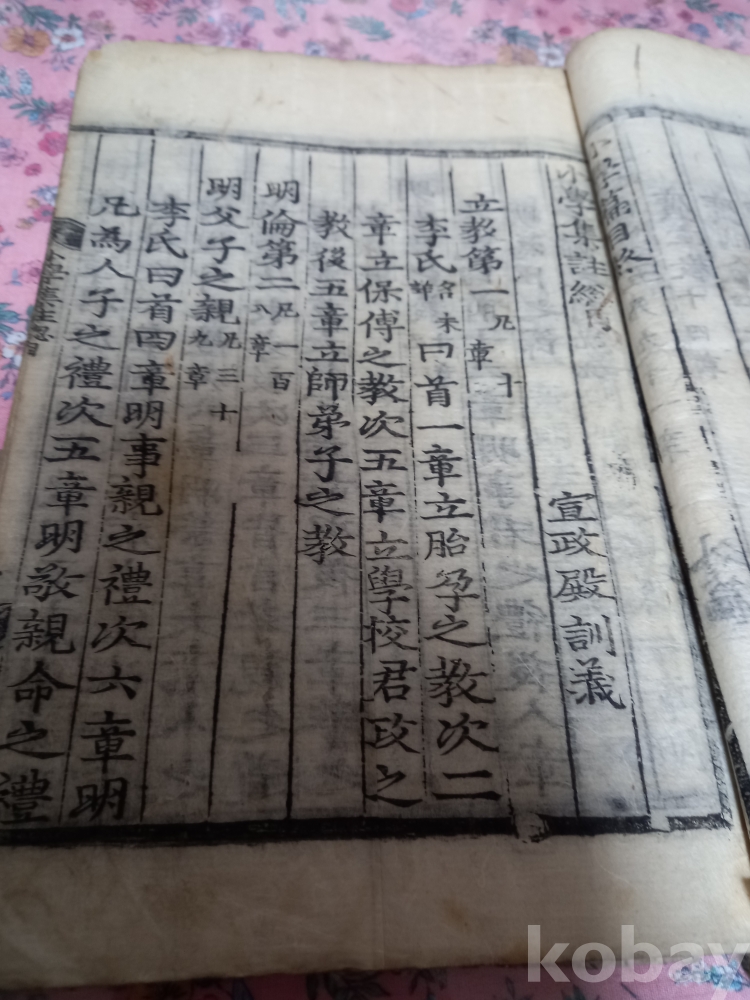 小學集註總目
宣政殿訓義
立教第一凡十
章
李氏
名未
詳
曰首一章立胎孕之教次二
章立保傅之教次五章立學校君政之
教後五章立師弟子之教
明倫第二凡一百
八章
明父子之親凡三十
九章
李氏曰首四章明事親之禮次六章明
凡為人子之禮次五章明敬親命之禮
kobay